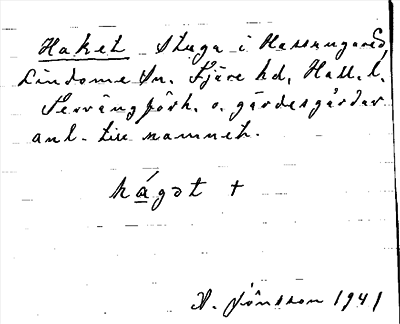 Haket Stuga i Hassungared,
Lindome Sn. Fjäre hd, Hall. l.
Terrängförh. o. gärdesgårdar
anl. till namnet.
hágət +
A. Jönsson 1941